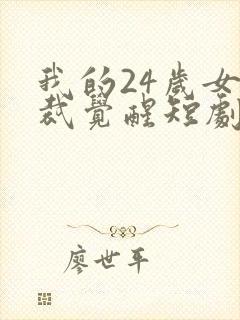 我的24歲女
裁覺醒短劇
廖世平